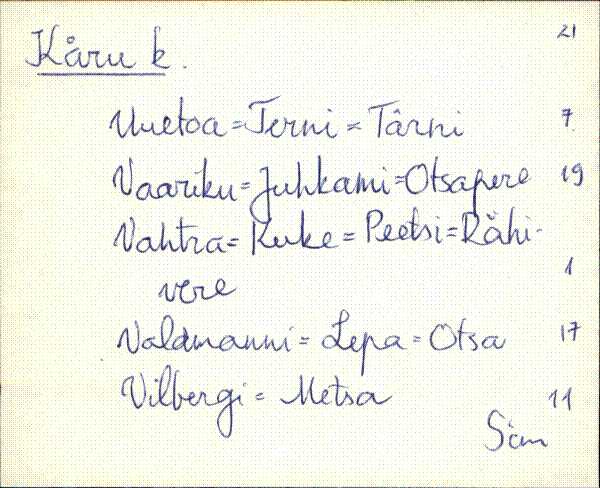 21
Käru k.
Uuetoa = Terni = Tärni 7
Vaariku = Juhkami = Otsapere 19
Vahtra = Kuke = Peetsi = Rähi-
vere 1
Valdmanni = Lepa = Otsa 17
Vilbergi = Metsa 11
Sim